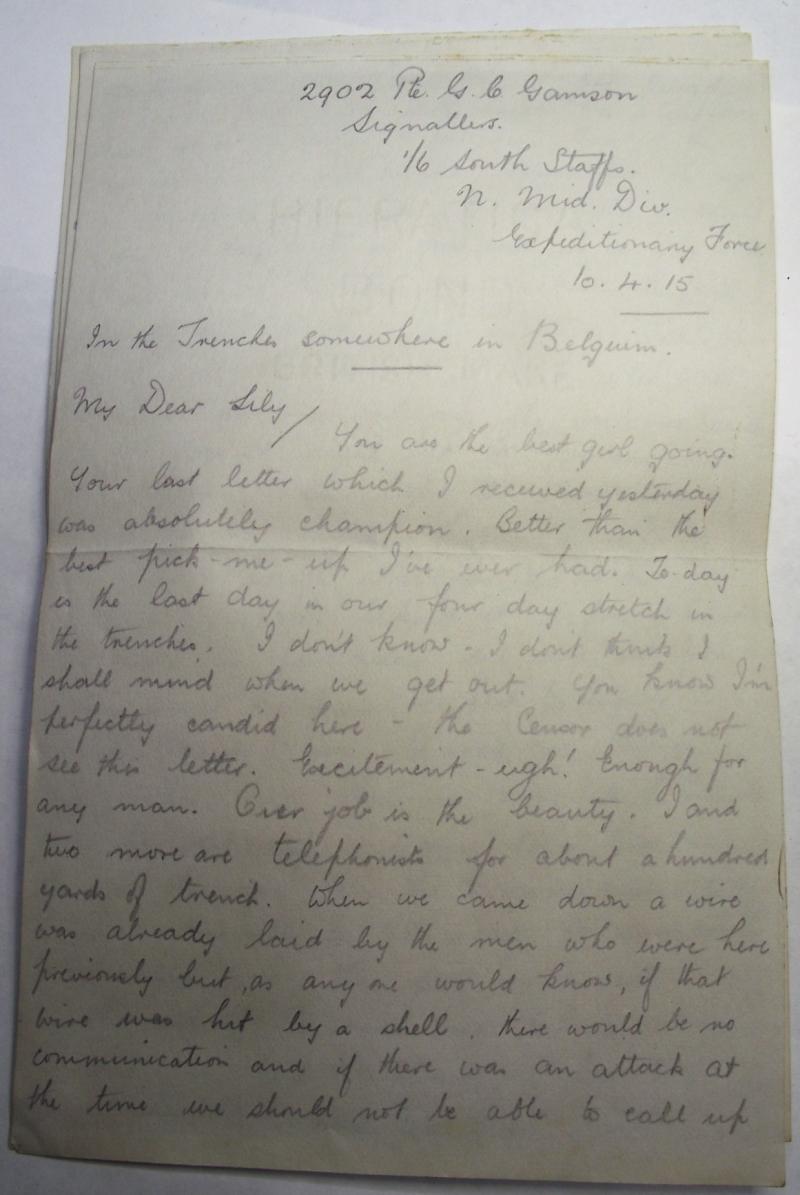 2902 Pte. G. C Gamson
Signallers.
1/6 South Staffs.
N. Mid. Div.
Expeditionary Force
10.4.15
In the Trenches somewhere in Belguim.
My Dear Lily /
You are the best girl going.
Your last letter which I received yesterday
was absolutely champion. Better than the
best pick-me-up I've ever had. To-day
is the last day in our four day stretch in
the trenches. I don't know - I don't think I
shall mind when we get out. You know I'm
perfectly candid here - the Censor does not
see this letter. Excitement - ugh! Enough for
any man. Our job is the beauty. I and
two more are telephonists for about a hundred
yards of trench. When we came down a wire
was already laid by the men who were here
previously but, as any one would know, if that
wire was hit by a shell, there would be no
communication and if there was an attack at
the time we should not be able to call up